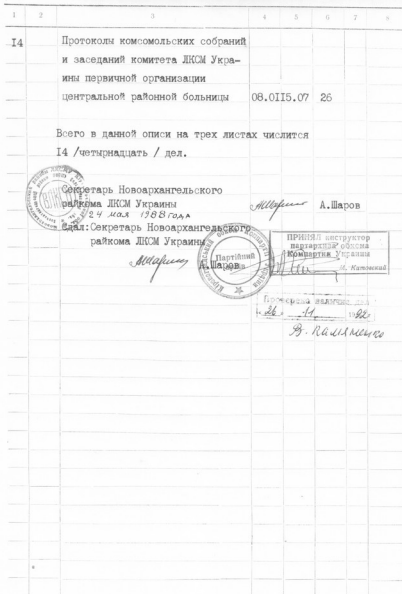 1 2 3 4 5 6 7 8
I4 Протоколы комсомольских собраний
и заседаний комитета ЛКСМ Укра-
ины первичной организации
центральной районной больницы 08.0II5.07 26
Всего в данной описи на трех листах числится
I4 /четырнадцать / дел.
Секретарь Новоархангельского
райкома ЛКСМ Украины А.Шаров
24 мая 1988 года
Сдал:Секретарь Новоархангельского
райкома ЛКСМ Украины
А.Шаров
Партійний
ПРИНЯЛ инструктор
партархива обкома
Компартии Украины
Проверено наличие дел
26 11 1992
В. Паламенко